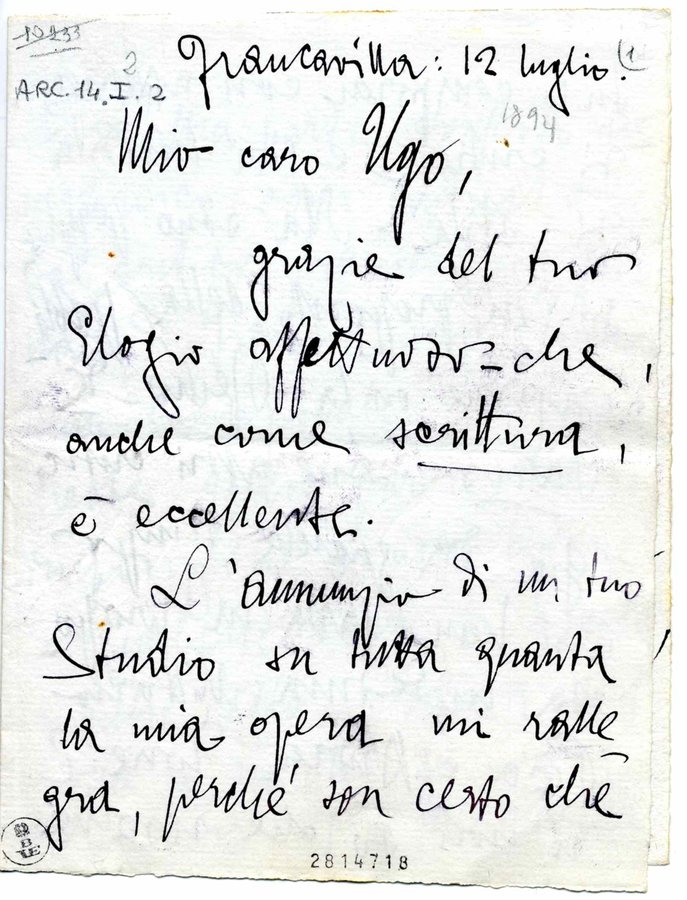 10233
2
Francavilla: 12 luglio. (1
ARC. 14. I. 2
1894
Mio caro Ugo,
grazie del tuo
Elogio affettuoso - che,
anche come scrittura,
è eccellente.
L'annunzio di un tuo
Studio su tutta quanta
la mia opera mi ralle
gra, perché son certo che
2814718